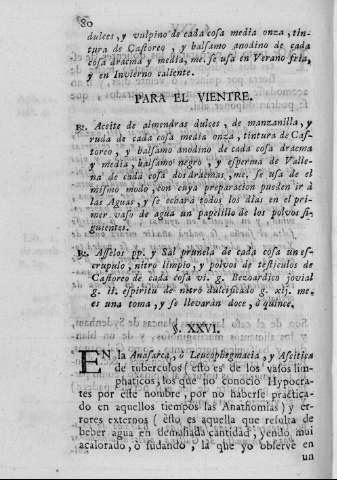 80
dulces, y vulpino de cada cosa media onza, tin-
tura de Castoreo, y balsamo anodino de cada
cosa dracma y media, me. se usa en Verano fria,
y en Invierno caliente.
PARA EL VIENTRE.
℞. Aceite de almendras dulces, de manzanilla, y
ruda de cada cosa media onza, tintura de Cas-
toreo, y balsamo anodino de cada cosa dracma
y media, balsamo negro, y esperma de Valle-
na de cada cosa dos dracmas, me. se usa de el
mismo modo, con cuya preparacion pueden ir à
las Aguas, y se echará todos los dias en el pri-
mer vaso de agua un papelillo de los polvos si-
guientes.
℞. Asselos pp. y Sal prunela de cada cosa un es-
crupulo, nitro limpio, y polvos de testiculos de
Castoreo de cada cosa vi. g. Bezoardico jovial
g. ii. espiritu de nitro dulcificado g. xij. me.
es una toma, y se llevarán doce, ò quince.
§. XXVI.
EN la Anasarca, ò Leucophegmacia, y Ascitica
de tuberculos (esto es de los vasos lim-
phaticos, los que no conociò Hypocra-
tes por este nombre, por no haberse practica-
do en aquellos tiempos las Anathomias) y er-
rores externos (esto es aquella que resulta de
beber agua en demasiada cantidad, yendo mui
acalorado, ò sudando, la que yo observè en
un